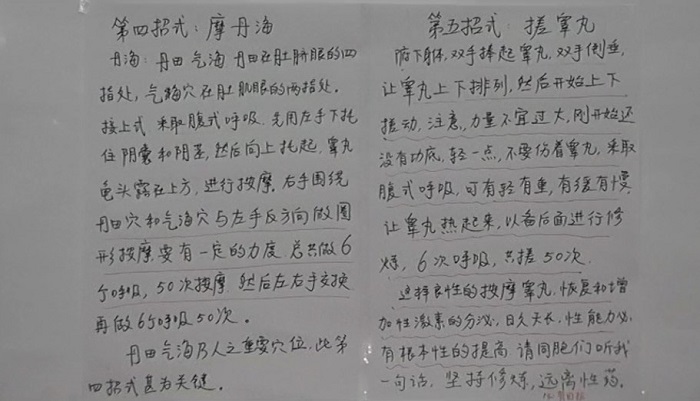 第四招式：摩丹海
丹海：丹田气海 丹田在肚脐眼的四
指处，气海穴在肚脐眼的两指处。
接上式 采取腹式呼吸 先用左手下托
住阴囊和阴茎，然后向上托起，睾丸
龟头露在上方，进行按摩 右手围绕
丹田穴和气海穴与左手反方向做圆
形按摩 要有一定的力度 总共做6
个呼吸，50次按摩 然后左右手交换
再做6个呼吸50次。
丹田气海乃人之重要穴位，此第
四招式甚为关键。
第五招式：搓睾丸
俯下身体，双手捧起睾丸，双手侧垂，
让睾丸上下排列，然后开始上下
搓动，注意，力量不宜过大，刚开始还
没有功底，轻一点，不要伤着睾丸，采取
腹式呼吸，可有轻有重，有缓有慢，
让睾丸热起来，以备后面进行修
炼，6次呼吸，共搓50次。
这样良性的按摩睾丸，恢复和增
加性激素的分泌，日久天长，性能力必
有根本性的提高 请同胞们听我
一句话，坚持修炼，远离性药。